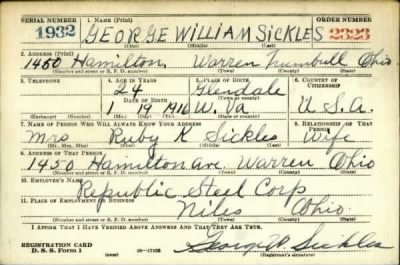 SERIAL NUMBER 1. NAME (Print) ORDER NUMBER
1932 GEORGE WILLIAM SICKLES 2323
(First) (Middle) (Last)
2. ADDRESS (Print)
1450 Hamilton, Warren Trumbull Ohio
(Number and street or R. F. D. number) (Town) (County) (State)
3. TELEPHONE 4. AGE IN YEARS 5. PLACE OF BIRTH 6. COUNTRY OF CITIZENSHIP
24 Glendale
DATE OF BIRTH (Town or county)
1 19 1916 W. Va. U.S.A.
(Exchange) (Number) (Mo.) (Day) (Yr.) (State or country)
7. NAME OF PERSON WHO WILL ALWAYS KNOW YOUR ADDRESS 8. RELATIONSHIP OF THAT PERSON
Mrs Ruby K Sickles Wife
(Mr., Mrs., Miss) (First) (Middle) (Last)
9. ADDRESS OF THAT PERSON
1450 Hamilton Ave Warren Ohio
(Number and street or R. F. D. number) (Town) (County) (State)
10. EMPLOYER'S NAME
Republic Steel Corp
11. PLACE OF EMPLOYMENT OR BUSINESS
Niles Ohio.
(Number and street or R. F. D. number) (Town) (County) (State)
I AFFIRM THAT I HAVE VERIFIED ABOVE ANSWERS AND THAT THEY ARE TRUE.
REGISTRATION CARD
D. S. S. Form 1 16—17105 George W Sickles
(Registrant's signature)